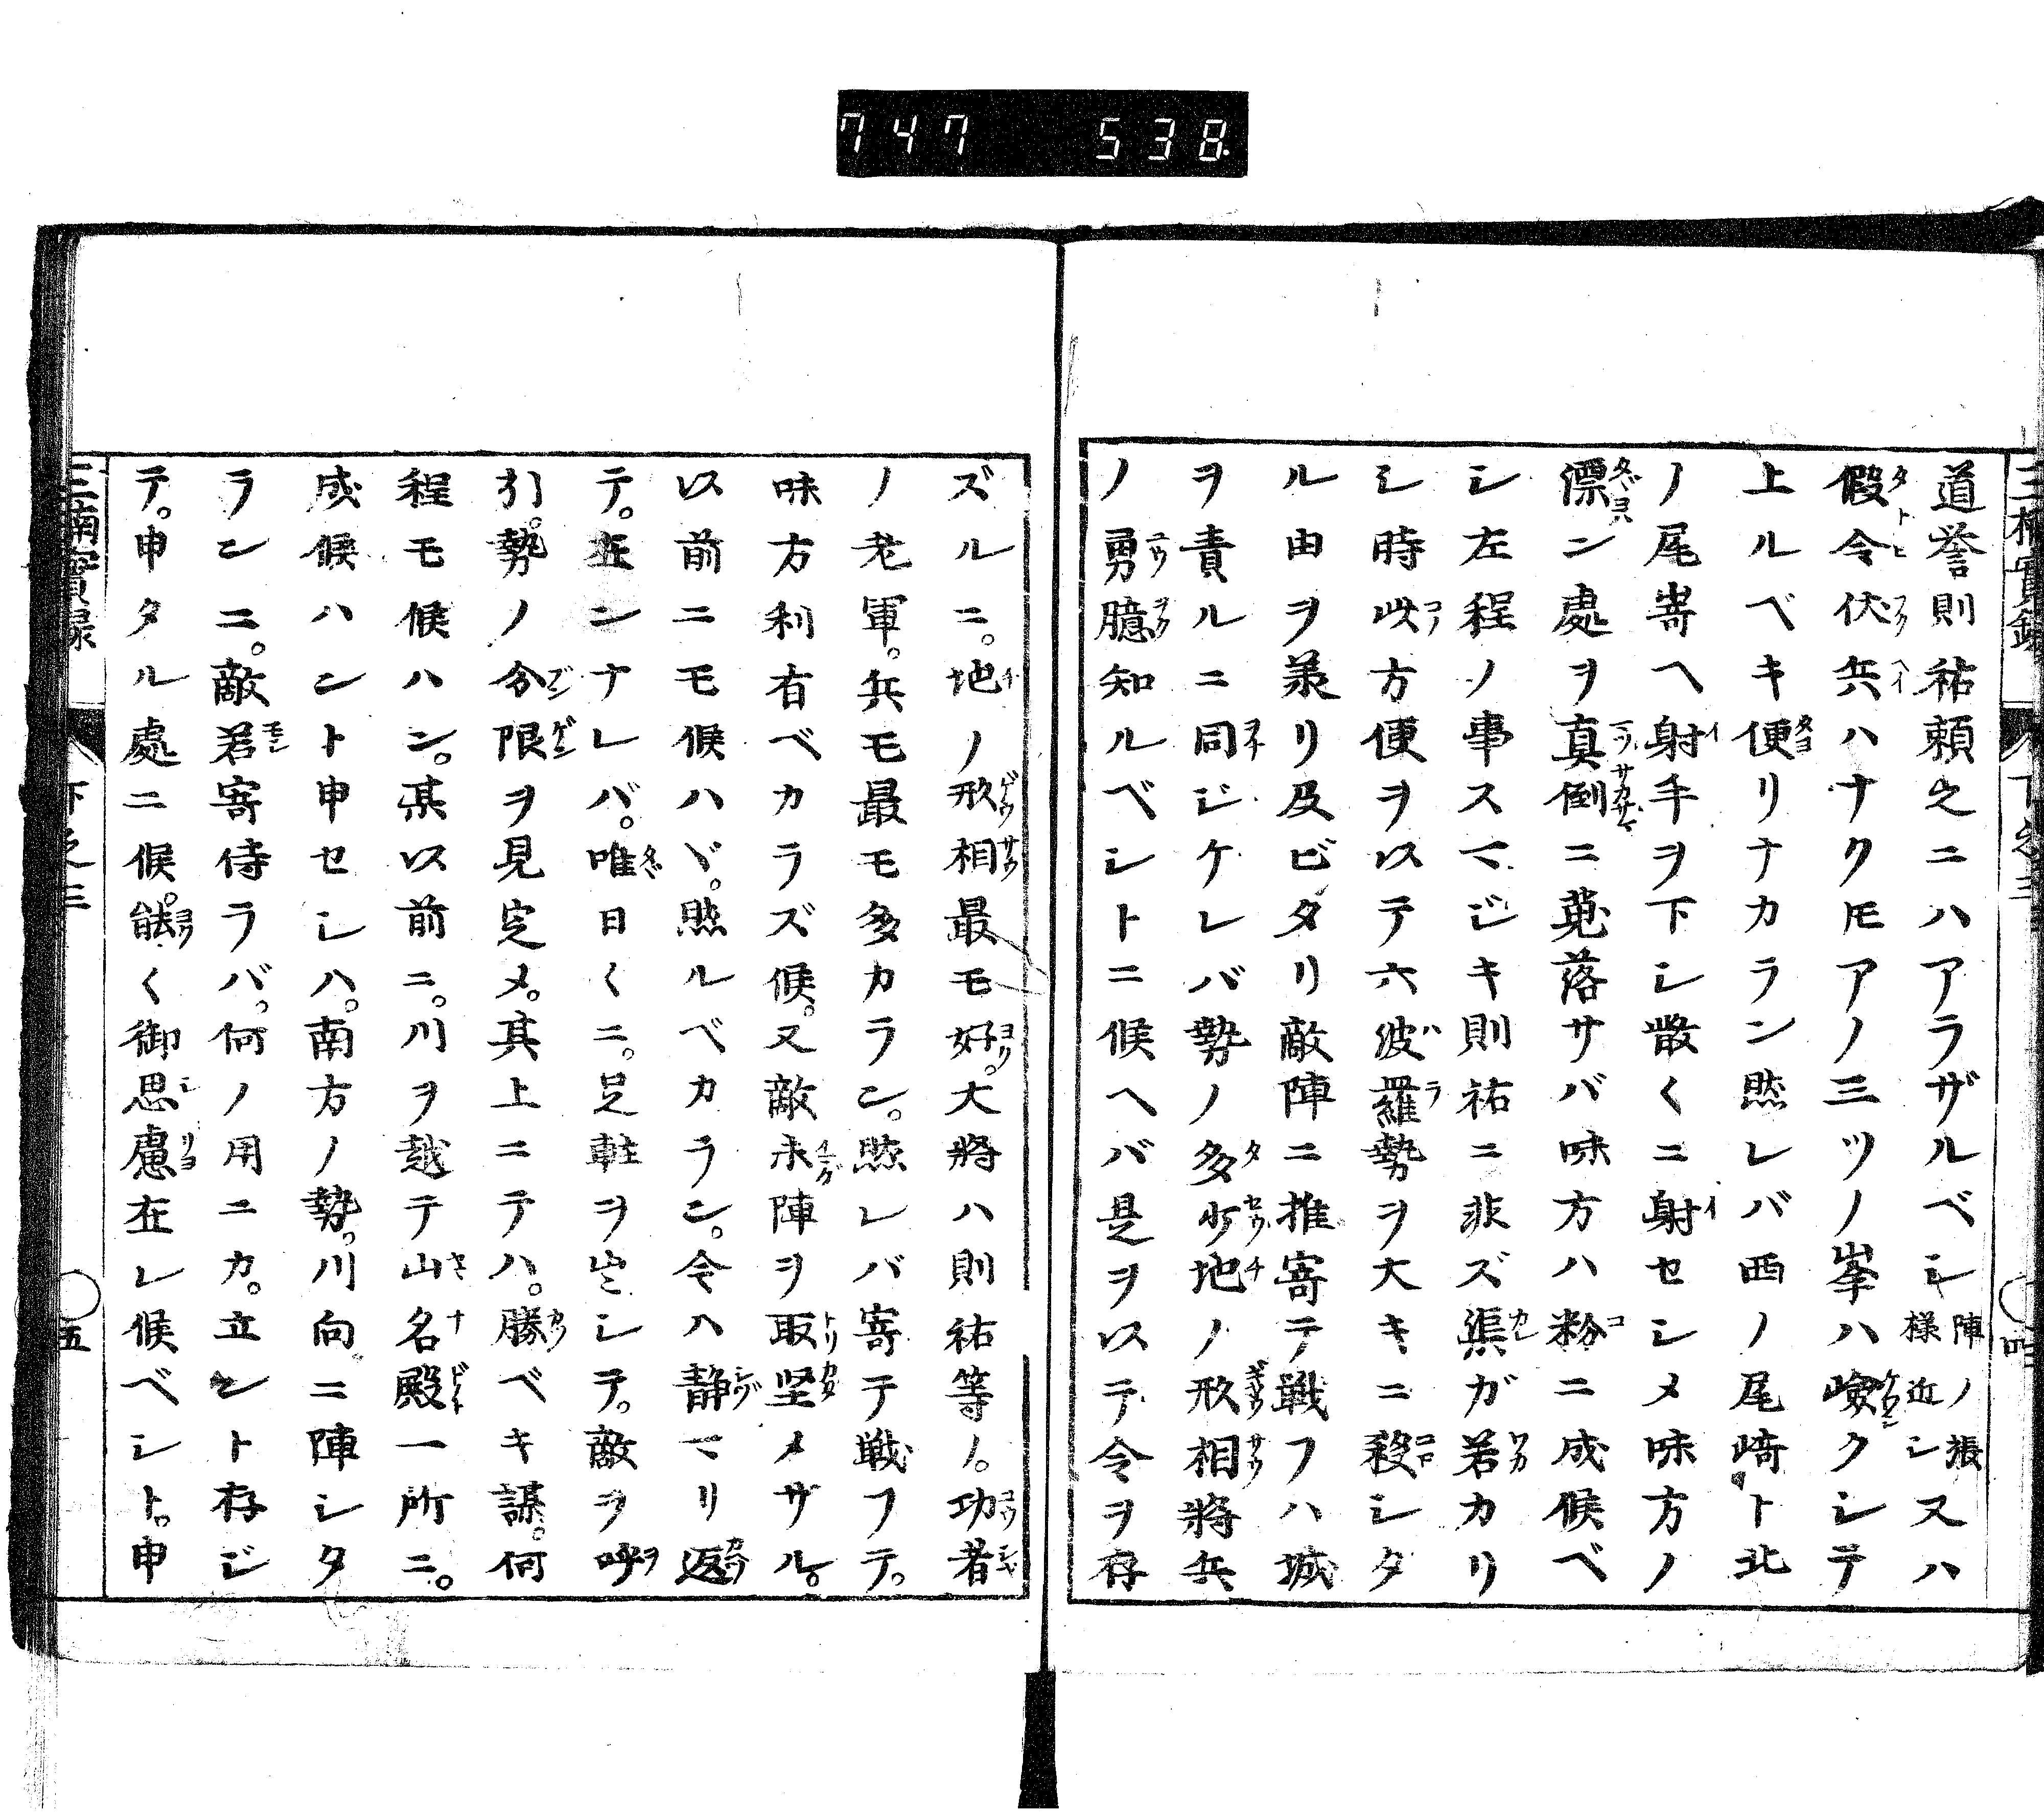 747 538.
三楠實録 下之三
道誉則祐頼之ニハアラザルベシ陣ノ張様近シ又ハ
假令伏兵ハナクモアノ三ツノ峯ハ嶮クシテ
上ルベキ便リナカラン然レバ西ノ尾崎ト北
ノ尾嵜ヘ射手ヲ下シ散くニ射セシメ味方ノ
漂ン處ヲ真倒ニ蒐落サバ味方ハ粉ニ成候ベ
シ左程ノ事スマジキ則祐ニ非ズ渠ガ若カリ
シ時此方便ヲ以テ六波羅勢ヲ大キニ移シタ
ル由ヲ羕リ及ビタリ敵陣ニ推寄テ戦フハ城
ヲ責ルニ同ジケレバ勢ノ多少地ノ形相將兵
ノ勇臆知ルベシトニ候ヘバ是ヲ以テ令ヲ存
ズルニ。地ノ形相最モ好。大將ハ則祐等ノ。功者
ノ老軍。兵モ最モ多カラン。然レバ寄テ戦フテ。
味方利有ベカラズ候。又敵未陣ヲ取堅メザル。
以前ニモ候ハヾ。然ルベカラン。今ハ静マリ返
テ。在ンナレバ。唯日くニ。足軽ヲ出シテ。敵ヲ呼
引。勢ノ分限ヲ見定メ。其上ニテハ。勝ベキ謀。何
程モ候ハン。某以前ニ。川ヲ越テ山名殿一所ニ。
成候ハント申セシハ。南方ノ勢。川向ニ陣シタ
ランニ。敵若寄侍ラバ。何ノ用ニカ。立ント存ジ
テ。申タル處ニ候。能く御思慮在レ候ベシト。申
三楠實録 下之三 五